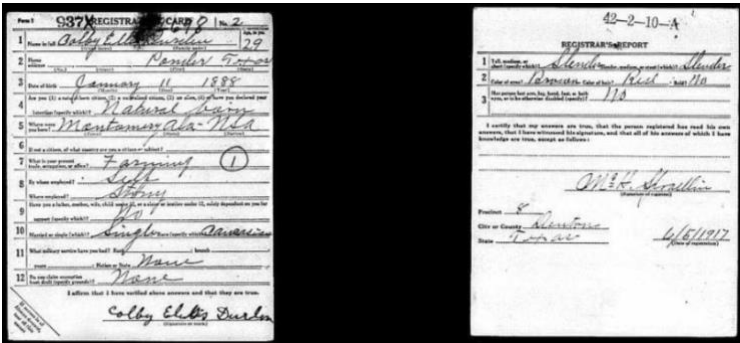 Form 1 937 REGISTRATION CARD No. 2
1 Name in full Colby
Age, in yrs. 29
2 Home address Ponder Texas
3 Date of birth January 11 1888
4 Are you (1) a natural-born citizen, (2) a naturalized citizen, (3) an alien, (4) or have you declared your intention (specify which)? Natural born
5 Where were you born? Montgomery Ala - USA
6 If not a citizen, of what country are you a citizen or subject?
7 What is your present trade, occupation, or office? Farming 1
8 By whom employed? Self
Where employed? Stony
9 Have you a father, mother, wife, child under 12, or a sister or brother under 12, solely dependent on you for support (specify which)? No
10 Married or single (which)? Single Race (specify which)? Caucasian
11 What military service have you had? Rank branch
years Nation or State None
12 Do you claim exemption from draft (specify grounds)? None
I affirm that I have verified above answers and that they are true.
Colby
(Signature or mark)
42-2-10-A
REGISTRAR'S REPORT
1 Tall, medium, or short (specify which)? Slender Slender, medium, or stout (which)? Slender
2 Color of eyes? Brown Color of hair? Red Bald? No
3 Has person lost arm, leg, hand, foot, or both eyes, or is he otherwise disabled (specify)? No
I certify that my answers are true, that the person registered has read his own
answers, that I have witnessed his signature, and that all of his answers of which I have
knowledge are true, except as follows:
(Signature of registrar)
Precinct 8
City or County Denton
State Texas 6/5/1917
(Date of registration)